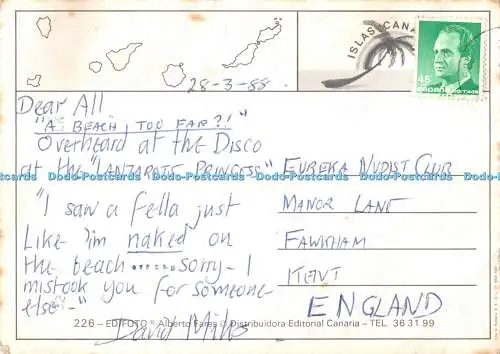 ISLAS CANA
28-3-88
45
ESPAÑA
Dear All
"A BEACH, TOO FAR?!"
Overheard at the Disco
at the "LANZAROTE PRINCESS"
"I saw a fella just
like 'im naked on
the beach ...... sorry - I
mistook you for someone
else -"
David Mills
EUREKA NUDIST CLUB
MANOR LANE
FAWKHAM
KENT
ENGLAND
226 - EDIFOTO ® Alberto Fares © Distribuidora Editorial Canaria - TEL. 36 31 99
Dodo-Postcards Dodo-Postcards Dodo-Postcards Dodo-Postcards Dodo-Postcards Dodo-Postcards